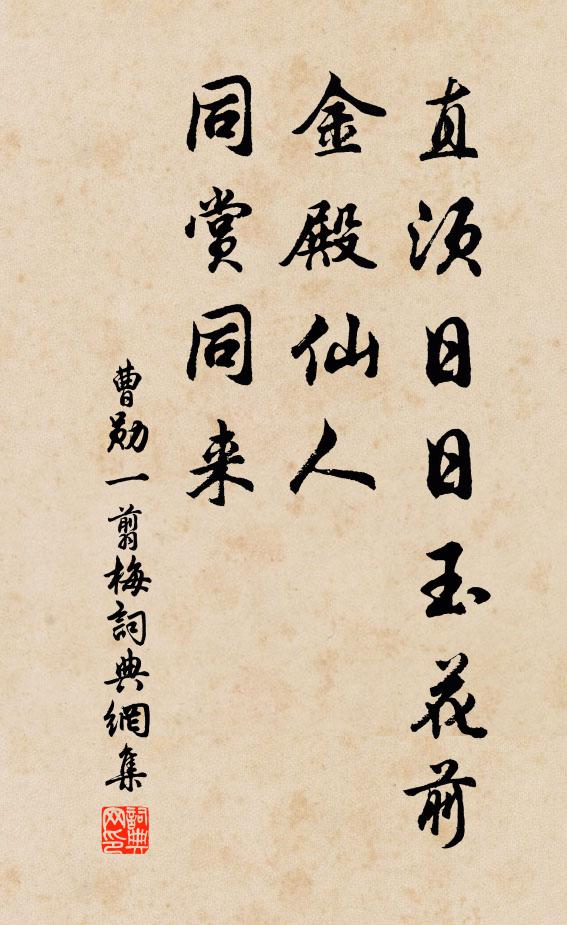 直须日日玉花前
金殿仙人
同赏同来
曹勋一剪梅詞典網集
詞典网印